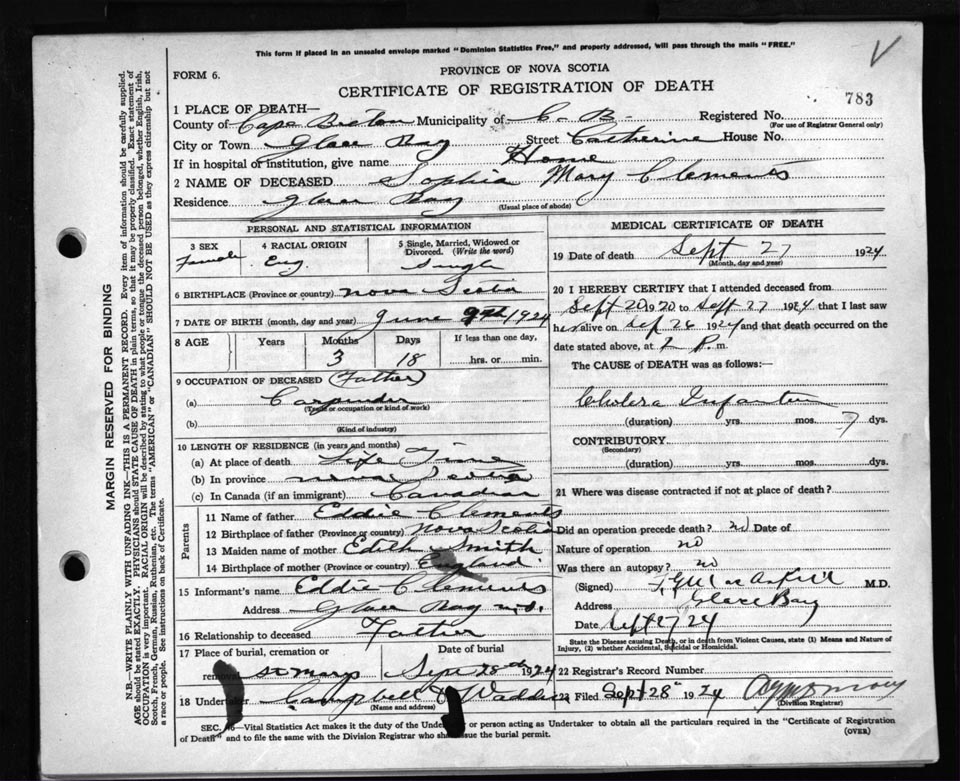 This form if placed in an unsealed envelope marked "Dominion Statistics Free," and properly addressed, will pass through the mails "FREE."
FORM 6.
PROVINCE OF NOVA SCOTIA
CERTIFICATE OF REGISTRATION OF DEATH
783
1 PLACE OF DEATH—
County of Cape Breton Municipality of C-B- Registered No.
(For use of Registrar General only)
City or Town Glace Bay Street Catherine House No.
If in hospital or institution, give name Home
2 NAME OF DECEASED Sophia Mary Clements
Residence Glace Bay
(Usual place of abode)
PERSONAL AND STATISTICAL INFORMATION
3 SEX Female
4 RACIAL ORIGIN Eng.
5 Single, Married, Widowed or Divorced. (Write the word) Single
6 BIRTHPLACE (Province or country) Nova Scotia
7 DATE OF BIRTH (month, day and year) June 9th 1924
8 AGE Years Months Days If less than one day,
3 18 hrs. or min.
9 OCCUPATION OF DECEASED (Father)
(a) Carpinder
(Trade or occupation or kind of work)
(b)
(Kind of industry)
10 LENGTH OF RESIDENCE (in years and months)
(a) At place of death Life Time
(b) In province Nova Scotia
(c) In Canada (if an immigrant) Canadian
Parents
11 Name of father Eddie Clements
12 Birthplace of father (Province or country) Nova Scotia
13 Maiden name of mother Edith Smith
14 Birthplace of mother (Province or country) England
15 Informant's name Eddie Clements
Address Glace Bay N.S.
16 Relationship to deceased Father
17 Place of burial, cremation or removal St Marys
Date of burial Sept 28th 1924
18 Undertaker Campbell & Wadden
(Name and address)
MEDICAL CERTIFICATE OF DEATH
19 Date of death Sept 27 1924
(Month, day and year)
20 I HEREBY CERTIFY that I attended deceased from
Sept 20 1920 to Sept 27 1924 that I last saw
her alive on Sep 26 1924 and that death occurred on the
date stated above, at 2 P. m.
The CAUSE of DEATH was as follows:
Cholera Infantum
(duration) yrs. mos. 7 dys.
CONTRIBUTORY
(Secondary)
(duration) yrs. mos. dys.
21 Where was disease contracted if not at place of death?
Did an operation precede death? no Date of
Nature of operation no
Was there an autopsy? no
(Signed) M.D.
Address Glace Bay
Date Sept 27 24
State the Disease causing Death, or in death from Violent Causes, state (1) Means and Nature of
Injury, (2) whether Accidental, Suicidal or Homicidal.
22 Registrar's Record Number
23 Filed Sept 28 1924
(Division Registrar)
SEC. —Vital Statistics Act makes it the duty of the Undertaker or person acting as Undertaker to obtain all the particulars required in the "Certificate of Registration
of Death" and to file the same with the Division Registrar who shall issue the burial permit.
(OVER)
MARGIN RESERVED FOR BINDING
N.B.—WRITE PLAINLY WITH UNFADING INK—THIS IS A PERMANENT RECORD. Every item of information should be carefully supplied.
AGE should be stated EXACTLY. PHYSICIANS should STATE CAUSE OF DEATH in plain terms, so that it may be properly classified. Exact statement of
OCCUPATION is very important. RACIAL ORIGIN will be described by stating to what people or tongue the deceased person belonged, whether English, Irish,
Scotch, French, German, Russian, Ruthenian, etc. The terms "AMERICAN" or "CANADIAN" SHOULD NOT BE USED as they express citizenship but not
a race or people. See instructions on back of Certificate.